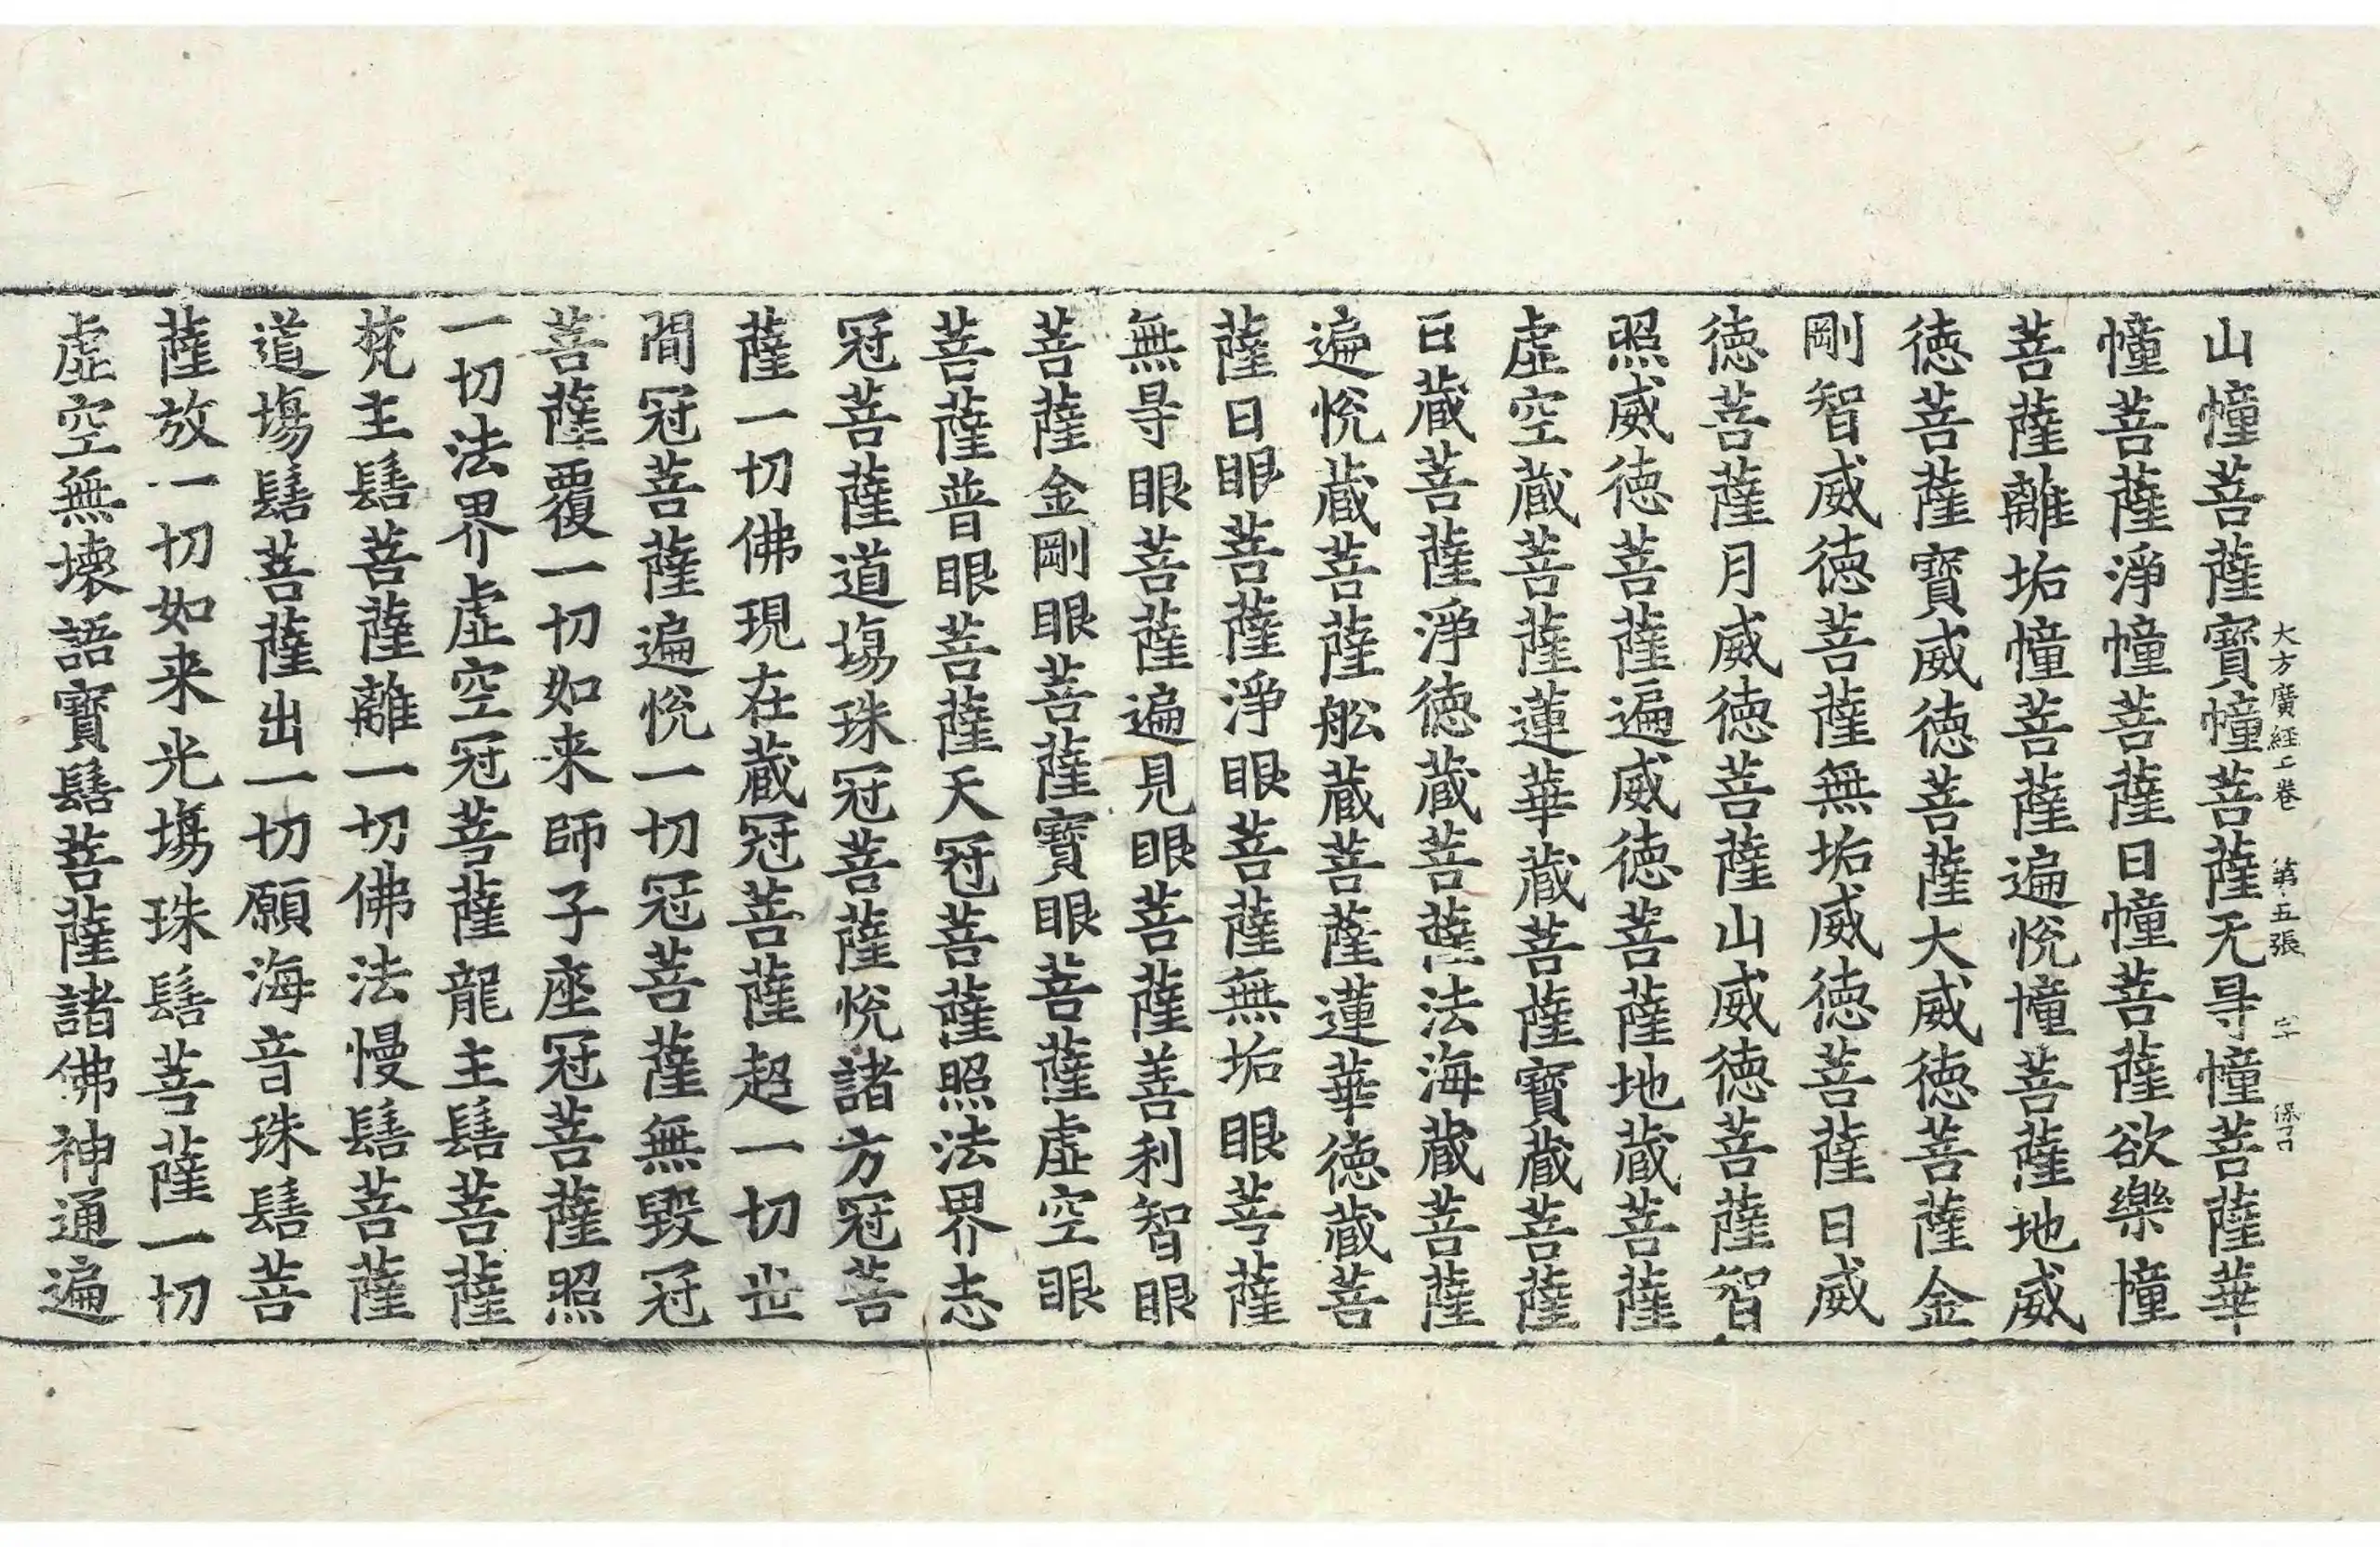 大方廣経二卷 第五張 字
山幢菩薩寶幢菩薩无㝵幢菩薩華
幢菩薩淨幢菩薩日幢菩薩欲樂幢
菩薩離垢幢菩薩遍悅幢菩薩地威
徳菩薩寶威徳菩薩大威徳菩薩金
剛智威徳菩薩無垢威徳菩薩日威
徳菩薩月威徳菩薩山威徳菩薩智
照威徳菩薩遍威徳菩薩地蔵菩薩
虛空蔵菩薩蓮華蔵菩薩寶蔵菩薩
日蔵菩薩淨徳蔵菩薩法海蔵菩薩
遍悅蔵菩薩舩蔵菩薩蓮華徳蔵菩
薩日眼菩薩淨眼菩薩無垢眼菩薩
無㝵眼菩薩遍見眼菩薩善利智眼
菩薩金剛眼菩薩寶眼菩薩虛空眼
菩薩普眼菩薩天冠菩薩照法界志
冠菩薩道塲珠冠菩薩悅諸方冠菩
薩一切佛現在蔵冠菩薩超一切世
間冠菩薩遍悅一切冠菩薩無毀冠
菩薩覆一切如来師子座冠菩薩照
一切法界虛空冠菩薩龍主髻菩薩
梵主髻菩薩離一切佛法慢髻菩薩
道塲髻菩薩出一切願海音珠髻菩
薩放一切如来光塲珠髻菩薩一切
虛空無壊語寶髻菩薩諸佛神通遍